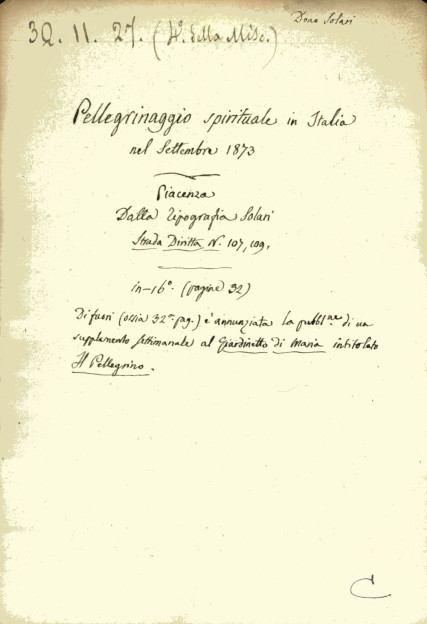 Dono Solari
3Q. 11. 27. (4º. della Misc.)
Pellegrinaggio spirituale in Italia
nel Settembre 1873
Piacenza
Dalla Tipografia Solari
Strada Diritta N. 107, 109.
in-16º. (pagine 32)
Di fuori (ossia 32ª pag.) è annunziata la pubblne di un
supplemento settimanale al Giardinetto di Maria intitolato
Il Pellegrino.
C